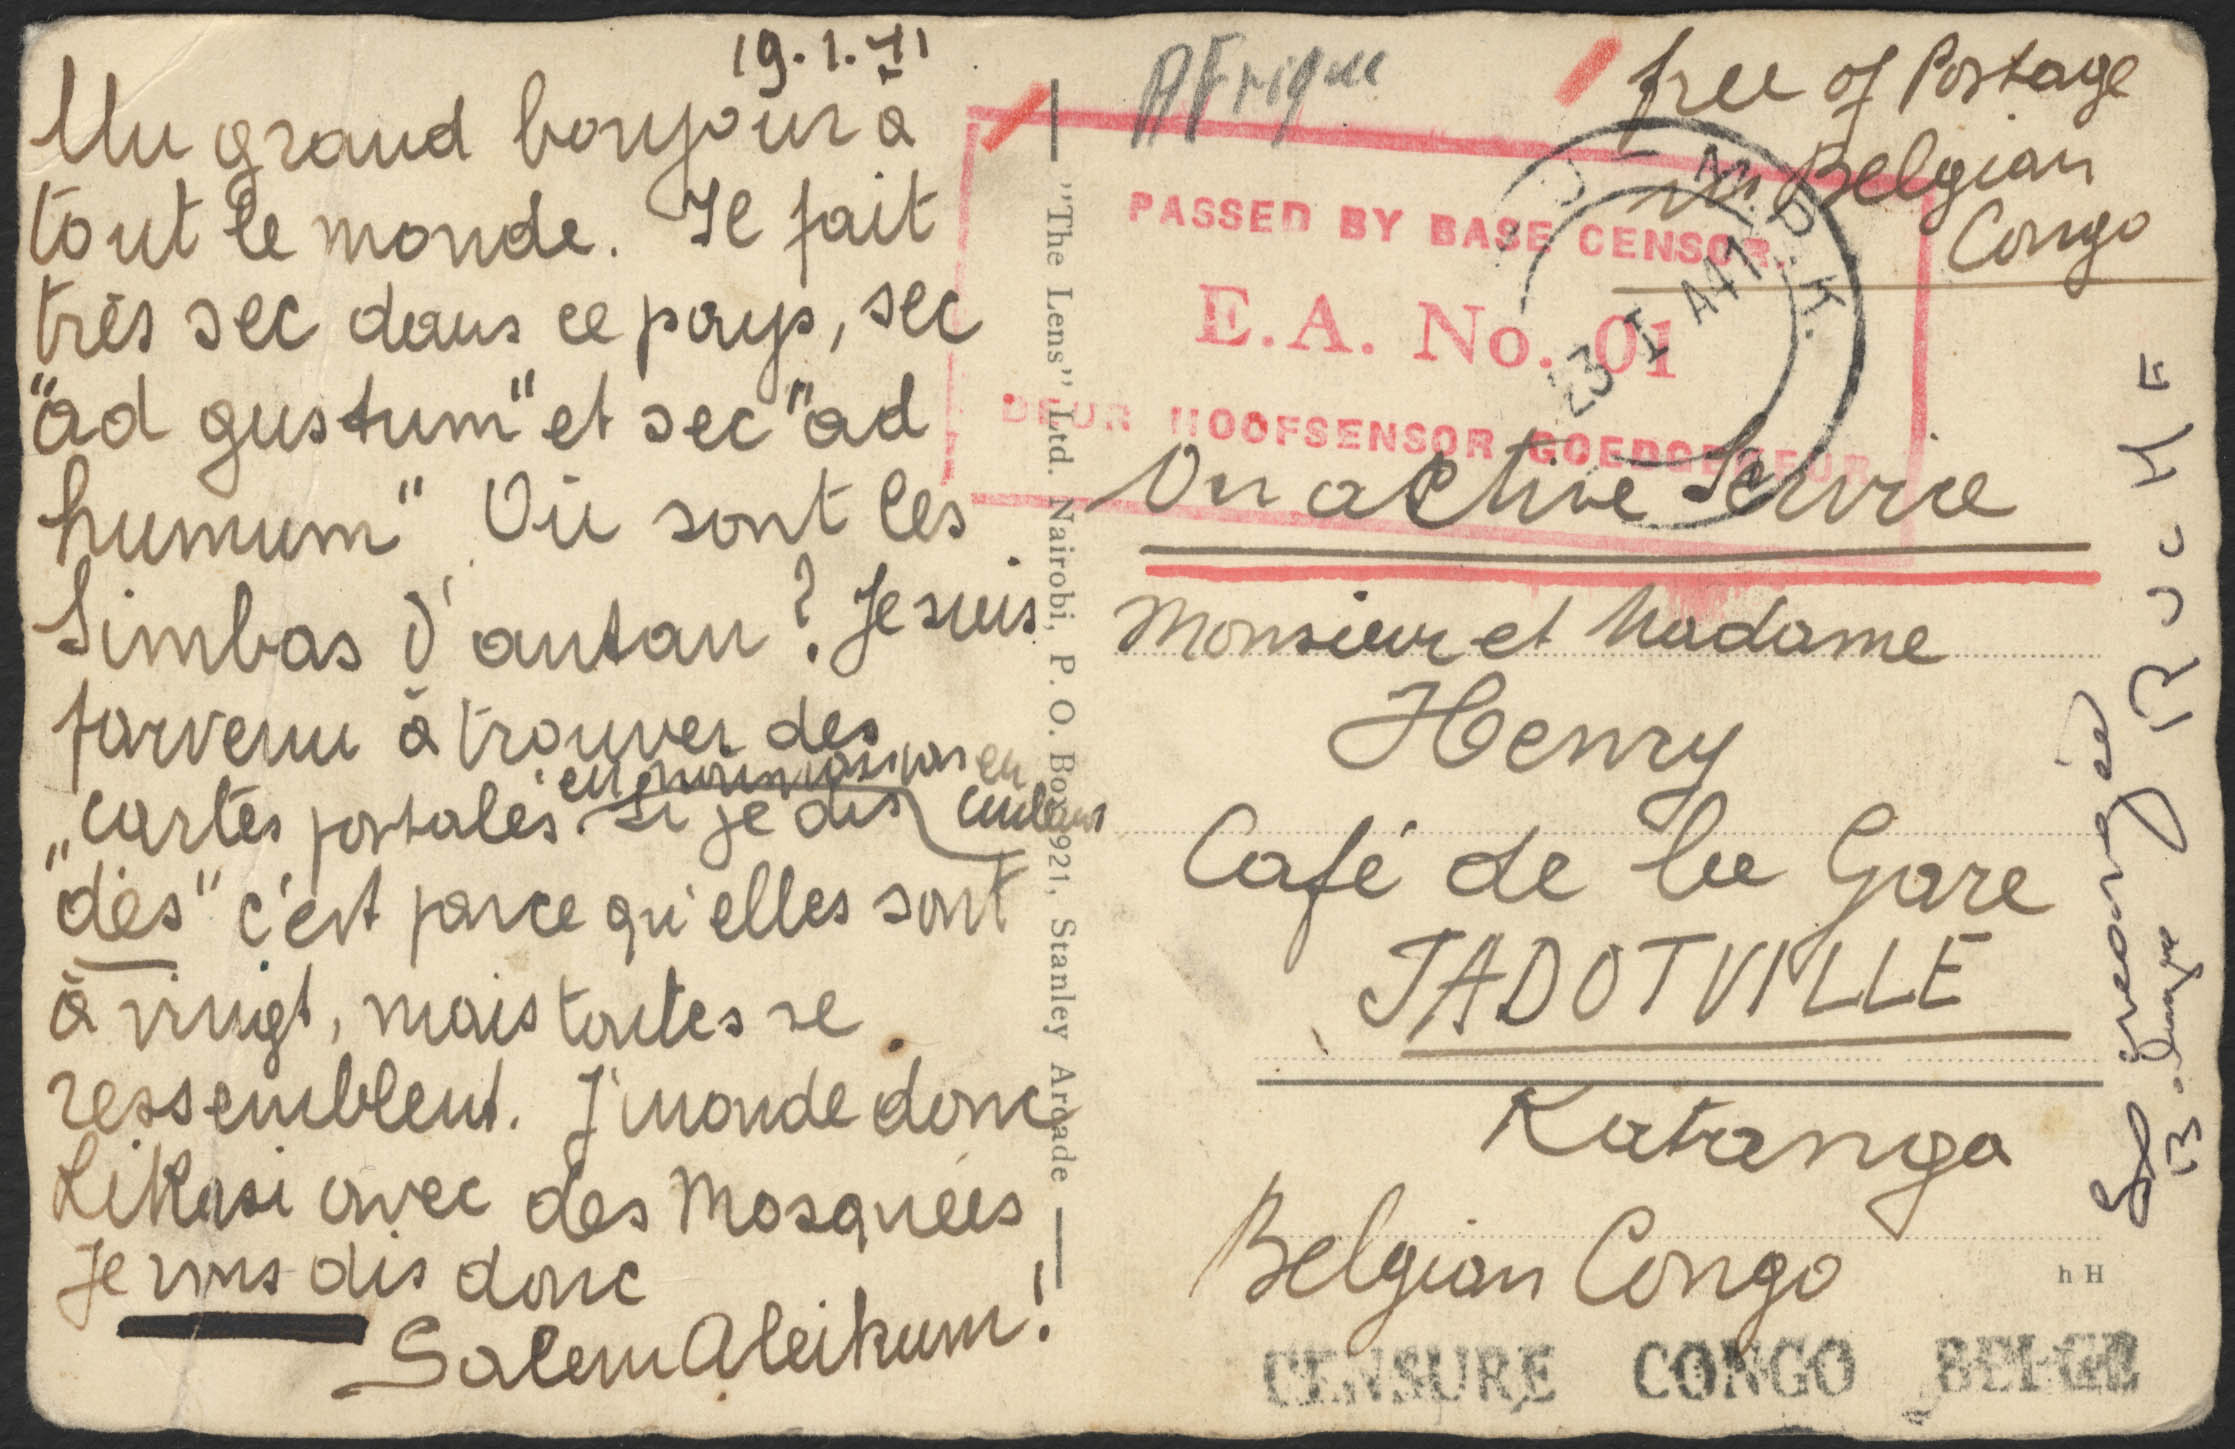 19.1.41
Un grand bonjour à
tout le monde. Il fait
très sec dans ce pays, sec
"ad gustum" et sec "ad
humum" Où sont les
Simbas d'antan? Je suis
parvenu à trouver des
en en
"cartes postales. Si je dis couleurs
"des" c'est parce qu'elles sont
à vingt, mais toutes se
ressemblent. J'inonde donc
Likasi avec des Mosquées
Je vous dis donc
Salem Aleikum!
"The Lens" Ltd. Nairobi, P. O. Box 921, Stanley Arcade
AFrique
free of Postage
in Belgian
Congo
PASSED BY BASE CENSOR.
E.A. No. 01
DEUR HOOFSENSOR GOEDGEKEUR
M.P.K.
23 I A41
On active Service
Monsieur et Madame
Henry
Café de la Gare
JADOTVILLE
Katanga
Belgian Congo
h H
CENSURE CONGO BELGE